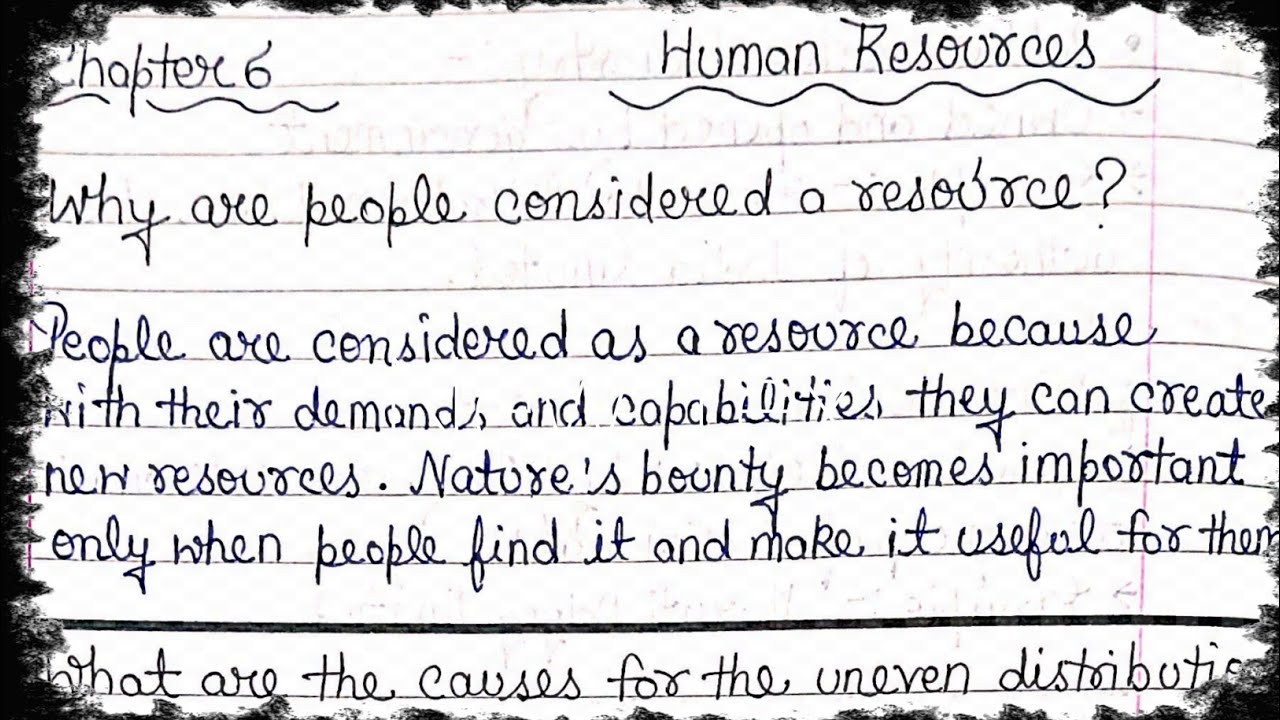 Chapter 6
Human Resources
Why are people considered a resource?
People are considered as a resource because
with their demands and capabilities they can create
new resources. Nature's bounty becomes important
only when people find it and make it useful for them
What are the causes for the uneven distributio